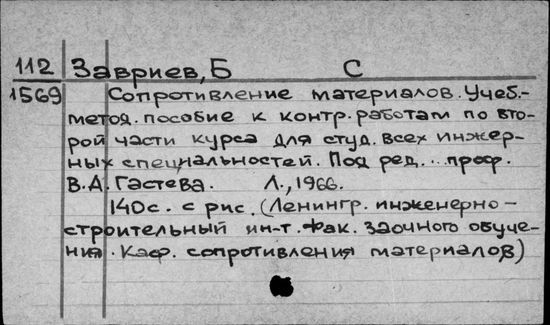 112 Завриев, Б С
1569 Сопротивление материалов. Учеб.-
метод. пособие к контр. работам по вто-
рой части курса для студ. всех инжер-
ных специальностей. Под ред... проф.
В.А. Гастева. Л., 1966.
140с. с рис. (Ленингр. инженерно-
строительный ин-т. Фак. заочного обуче-
ния. Каф. сопротивления материалов)